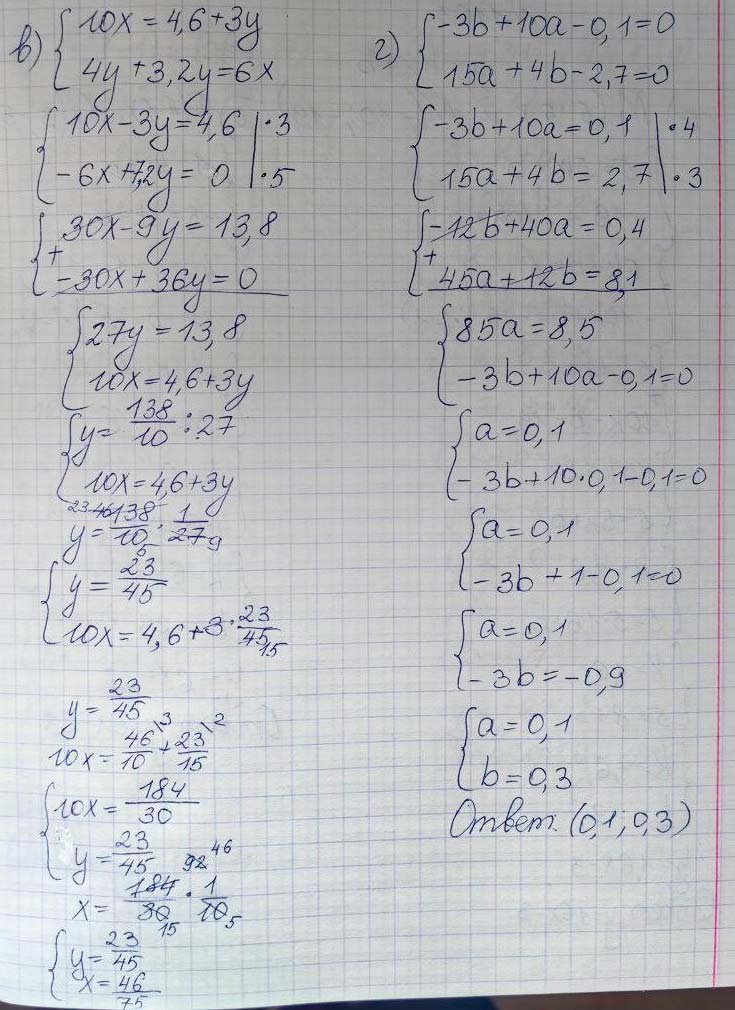 в) { 10x = 4,6 + 3y
4y + 3,2y = 6x
{ 10x - 3y = 4,6 | · 3
-6x + 7,2y = 0 | · 5
{ 30x - 9y = 13,8
+
-30x + 36y = 0
{ 27y = 13,8
10x = 4,6 + 3y
{ y = 138/10 : 27
10x = 4,6 + 3y
23 46
y = 138/10 · 1/27
5 9
{ y = 23/45
10x = 4,6 + 3 · 23/45
15
y = 23/45
10x = 46/10 \3 + 23/15 \2
{ 10x = 184/30
y = 23/45
92 46
x = 184/30 · 1/10
15 5
{ y = 23/45
x = 46/75
г) { -3b + 10a - 0,1 = 0
15a + 4b - 2,7 = 0
{ -3b + 10a = 0,1 | · 4
15a + 4b = 2,7 | · 3
{ -12b + 40a = 0,4
+
45a + 12b = 8,1
{ 85a = 8,5
-3b + 10a - 0,1 = 0
{ a = 0,1
-3b + 10 · 0,1 - 0,1 = 0
{ a = 0,1
-3b + 1 - 0,1 = 0
{ a = 0,1
-3b = -0,9
{ a = 0,1
b = 0,3
Ответ: (0,1; 0,3)